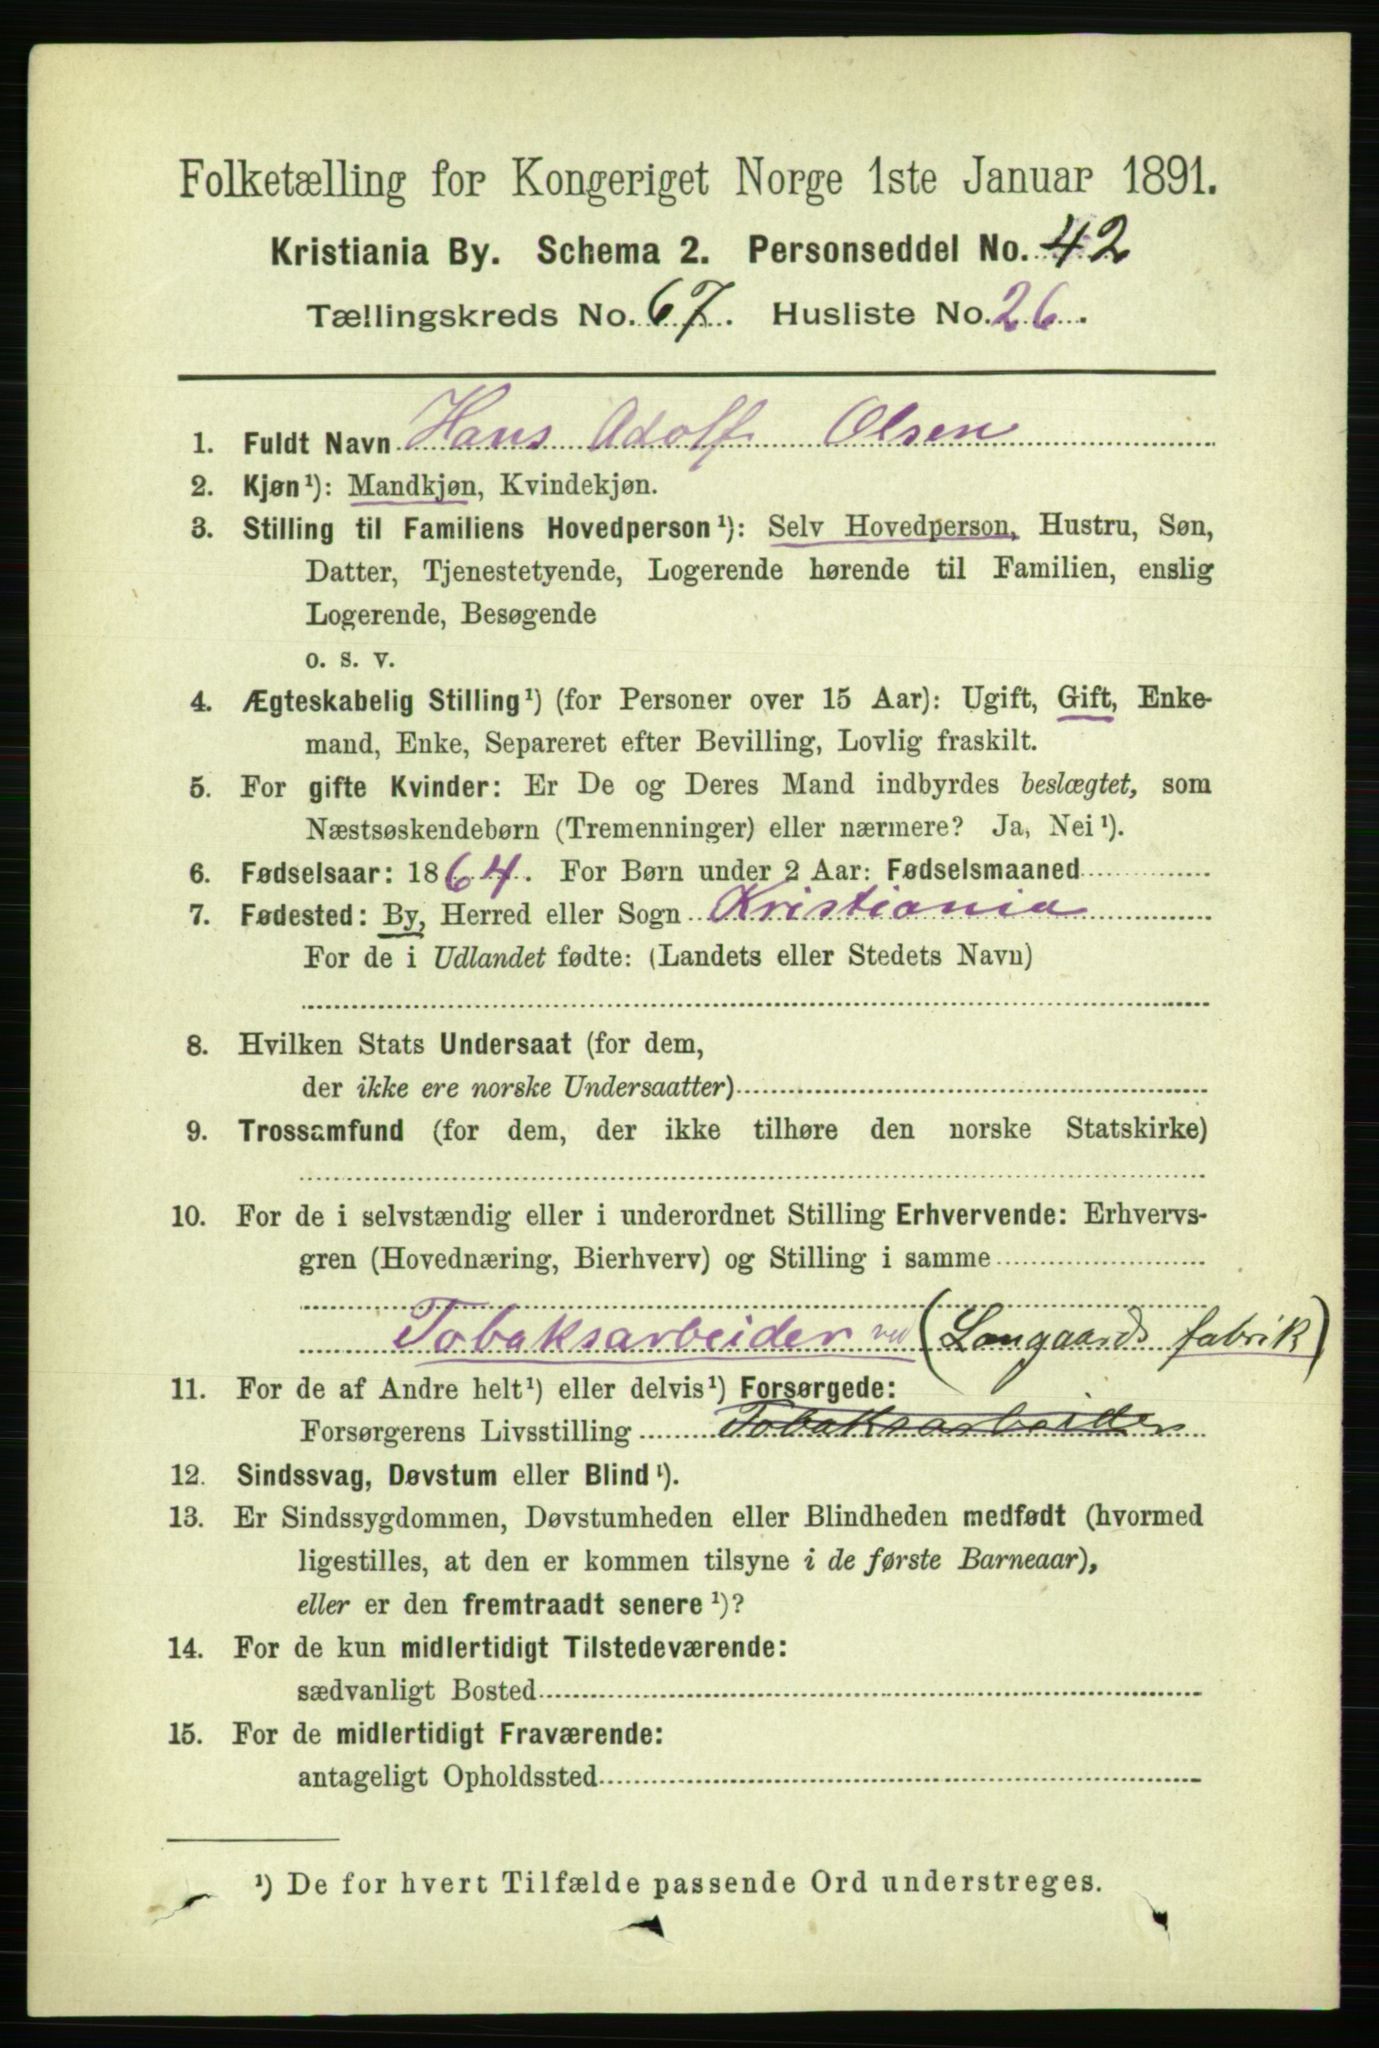 Folketælling for Kongeriget Norge 1ste Januar 1891.
Kristiania By. Schema 2. Personseddel No. 42
Tællingskreds No. 67. Husliste No. 26.
1. Fuldt Navn Hans Adolf Olsen
2. Kjøn¹): Mandkjøn, Kvindekjøn.
3. Stilling til Familiens Hovedperson¹): Selv Hovedperson, Hustru, Søn,
Datter, Tjenestetyende, Logerende hørende til Familien, enslig
Logerende, Besøgende
o. s. v.
4. Ægteskabelig Stilling¹) (for Personer over 15 Aar): Ugift, Gift, Enke-
mand, Enke, Separeret efter Bevilling, Lovlig fraskilt.
5. For gifte Kvinder: Er De og Deres Mand indbyrdes beslægtet, som
Næstsøskendebørn (Tremenninger) eller nærmere? Ja, Nei¹).
6. Fødselsaar: 1864. For Børn under 2 Aar: Fødselsmaaned
7. Fødested: By, Herred eller Sogn Kristiania
For de i Udlandet fødte: (Landets eller Stedets Navn)
8. Hvilken Stats Undersaat (for dem,
der ikke ere norske Undersaatter)
9. Trossamfund (for dem, der ikke tilhøre den norske Statskirke)
10. For de i selvstændig eller i underordnet Stilling Erhvervende: Erhvervs-
gren (Hovednæring, Bierhverv) og Stilling i samme
Tobaksarbeider ved (Langaards fabrik)
11. For de af Andre helt¹) eller delvis¹) Forsørgede:
Forsørgerens Livsstilling Tobaksarbeider
12. Sindssvag, Døvstum eller Blind¹).
13. Er Sindssygdommen, Døvstumheden eller Blindheden medfødt (hvormed
ligestilles, at den er kommen tilsyne i de første Barneaar),
eller er den fremtraadt senere¹)?
14. For de kun midlertidigt Tilstedeværende:
sædvanligt Bosted
15. For de midlertidigt Fraværende:
antageligt Opholdssted
¹) De for hvert Tilfælde passende Ord understreges.